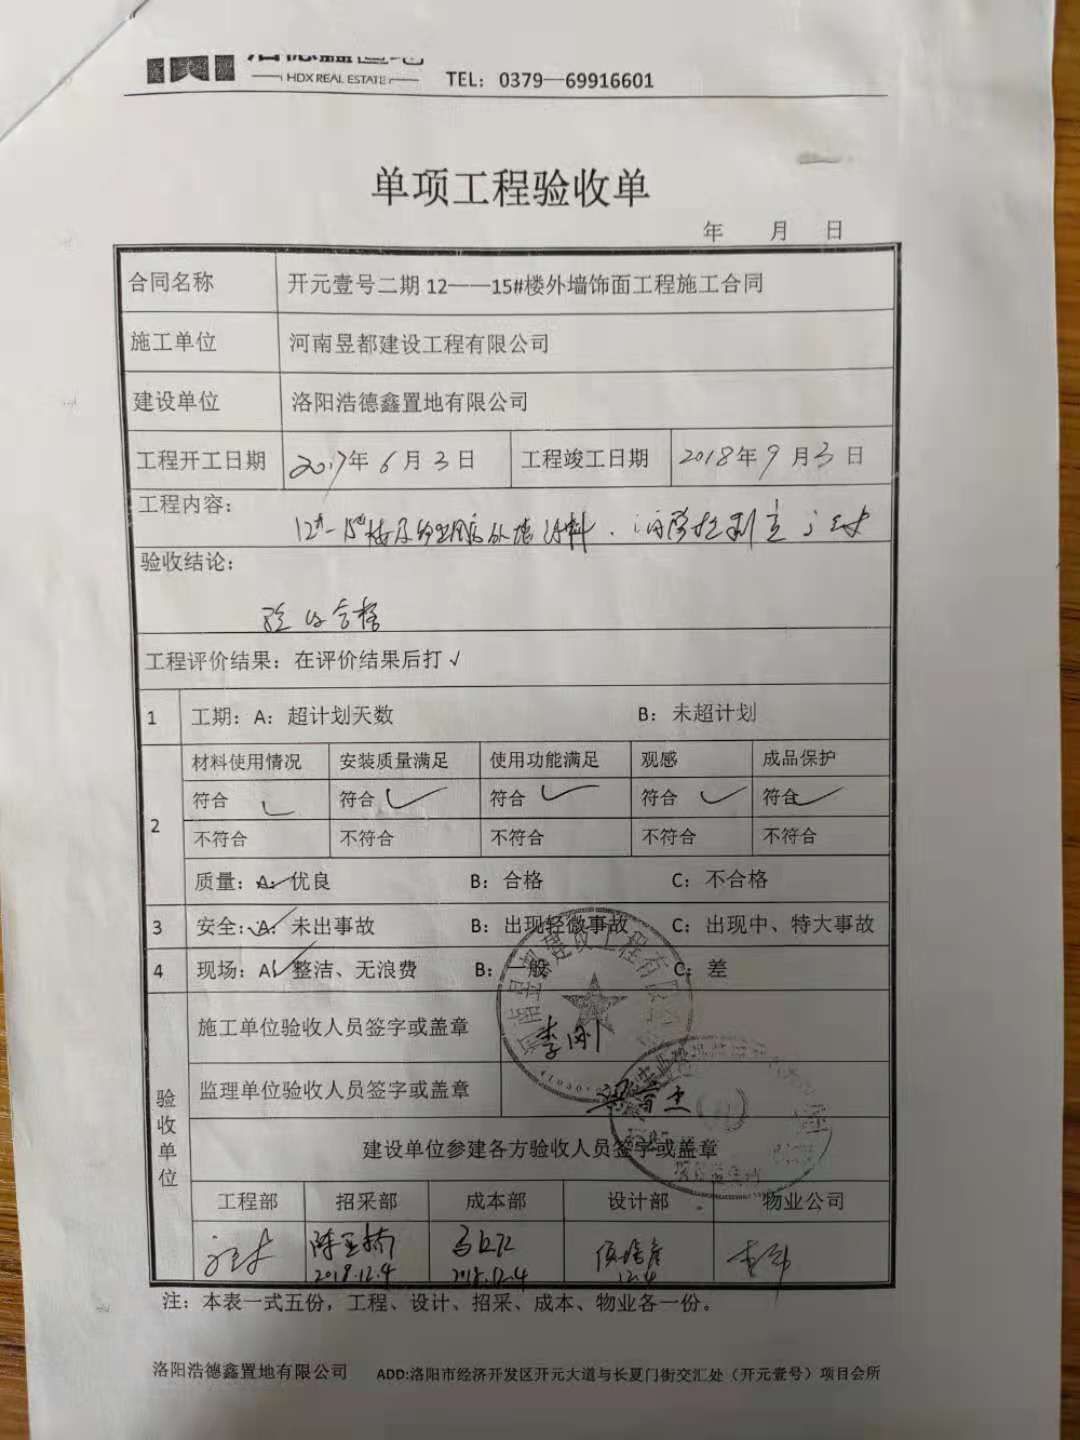 HDX REAL ESTATE
TEL：0379—69916601
单项工程验收单
年 月 日
合同名称 开元壹号二期 12——15#楼外墙饰面工程施工合同
施工单位 河南昱都建设工程有限公司
建设单位 洛阳浩德鑫置地有限公司
工程开工日期 2017年 6 月 3 日 工程竣工日期 2018年 9 月 3 日
工程内容：
12#-15#楼及 外墙涂料
验收结论：
验收合格
工程评价结果：在评价结果后打√
1 工期：A：超计划天数 B：未超计划
材料使用情况 安装质量满足 使用功能满足 观感 成品保护
符合 ✓ 符合 ✓ 符合 ✓ 符合 ✓ 符合 ✓
2
不符合 不符合 不符合 不符合 不符合
质量：A：✓优良 B：合格 C：不合格
3 安全：A：✓未出事故 B：出现轻微事故 C：出现中、特大事故
4 现场：A✓整洁、无浪费 B：一般 C：差
验收单位
施工单位验收人员签字或盖章
李刚
监理单位验收人员签字或盖章
建设单位参建各方验收人员签字或盖章
工程部 招采部 成本部 设计部 物业公司
2018.12.4 2018.12.4 12.4
注：本表一式五份，工程、设计、招采、成本、物业各一份。
洛阳浩德鑫置地有限公司 ADD:洛阳市经济开发区开元大道与长夏门街交汇处（开元壹号）项目会所